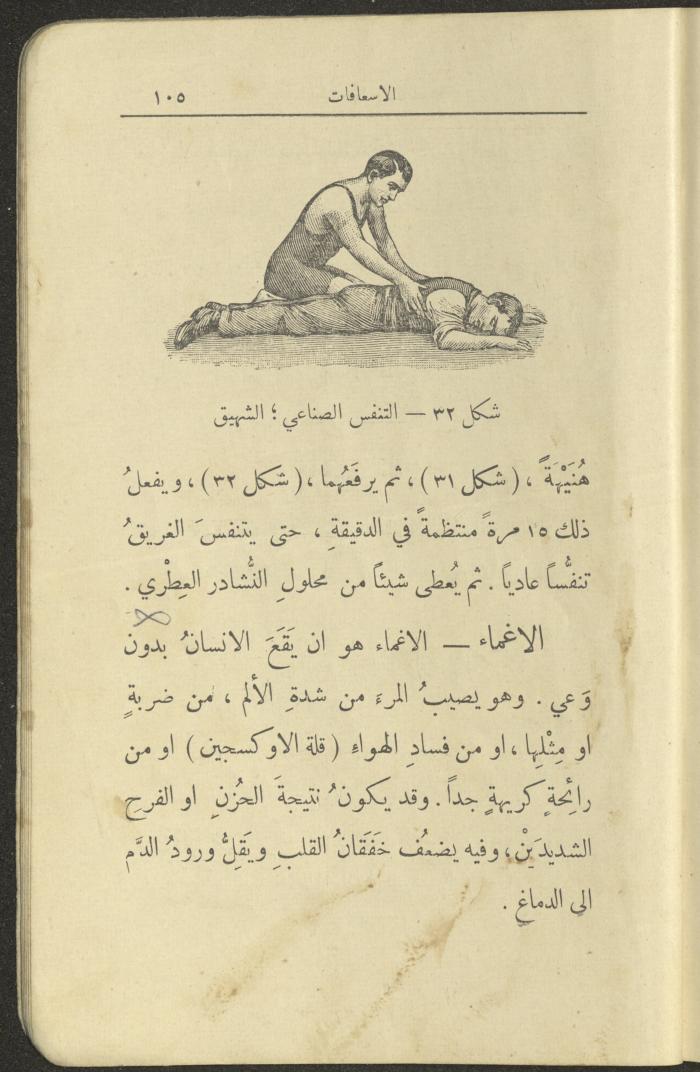 الاسعافات ١٠٥
شكل ٣٢ — التنفس الصناعي ؛ الشهيق
هُنَيْهَةً ، ( شكل ٣١ ) ، ثم يرفَعُهما ، ( شكل ٣٢ ) ، ويفعلُ
ذلك ١٥ مرةً منتظمةً في الدقيقةِ ، حتى يتنفسَ الغريقُ
تنفُّساً عادياً . ثم يُعطى شيئاً من محلولِ النُّشادر العِطْري .
الاغماء — الاغماء هو ان يَقَعَ الانسانُ بدون
وَعي . وهو يصيبُ المرءَ من شدةِ الألم ، من ضربةٍ
او مِثْلِها ، او من فسادِ الهواءِ ( قلة الاوكسجين ) او من
رائِحةٍ كريهةٍ جداً . وقد يكونُ نتيجةَ الحُزنِ او الفرحِ
الشديدَيْنِ ، وفيه يضعُف خَفَقانُ القلبِ ويَقِلُّ ورودُ الدَّم
الى الدماغِ .